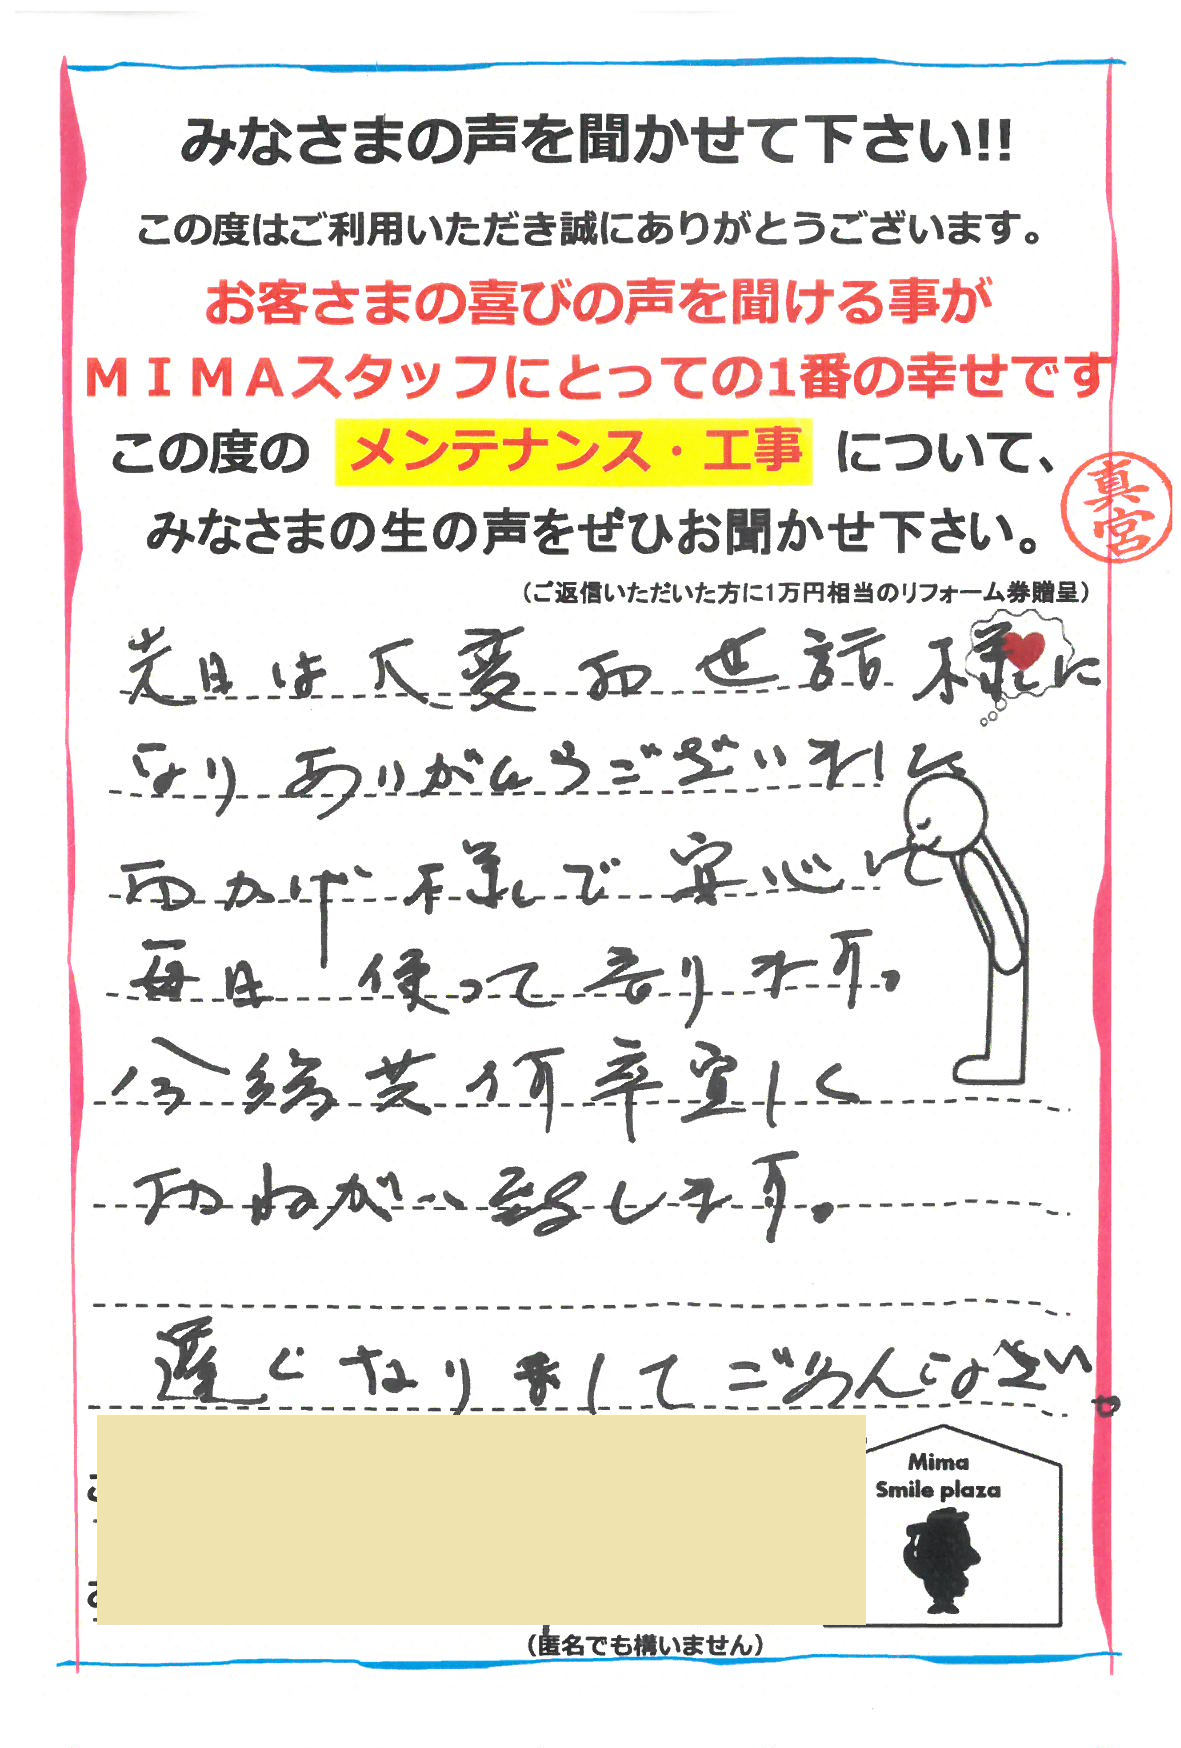 みなさまの声を聞かせて下さい!!
この度はご利用いただき誠にありがとうございます。
お客さまの喜びの声を聞ける事が
MIMAスタッフにとっての1番の幸せです
この度の メンテナンス・工事 について、
真宮
みなさまの生の声をぜひお聞かせ下さい。
(ご返信いただいた方に1万円相当のリフォーム券贈呈)
先日は大変お世話様に
なりありがとうございました
おかげ様で安心して
毎日使って居ります。
今後共何卒宜しく
おねがい致します。
遅くなりましてごめんなさい。
Mima
Smile plaza
(匿名でも構いません)